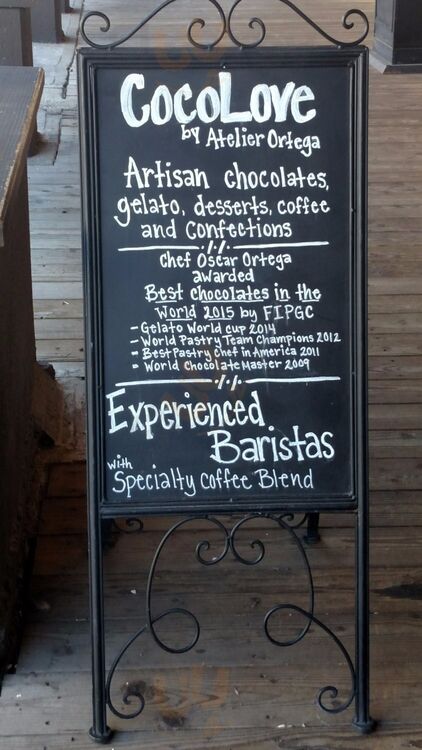 CocoLove
by Atelier Ortega
Artisan chocolates,
gelato, desserts, coffee
and Confections
Chef Oscar Ortega
awarded
Best chocolates in the
World 2015 by FIPGC
- Gelato World cup 2014
- World Pastry Team Champions 2012
- Best Pastry Chef in America 2011
- World Chocolate Master 2009
Experienced
Baristas
with
Specialty Coffee Blend